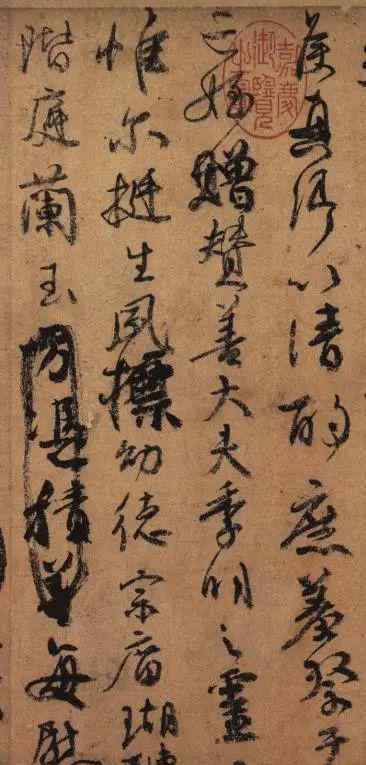 嘉慶御覽之寶
矦真卿以清酌庶羞祭于
亡姪贈贊善大夫季明之靈
惟尔挺生夙標幼德宗廟瑚璉
階庭蘭玉方憑積善每慰